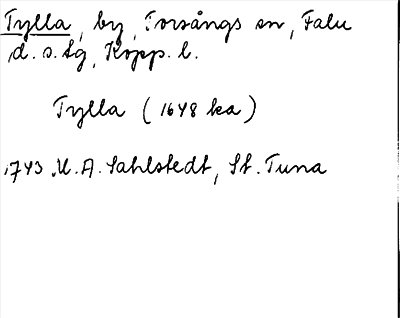 Tylla, by, Torsångs sn, Falu
d. s. lg, Kopp. l.
Tylla (1648 ka)
1743 M. A. Sahlstedt, St. Tuna